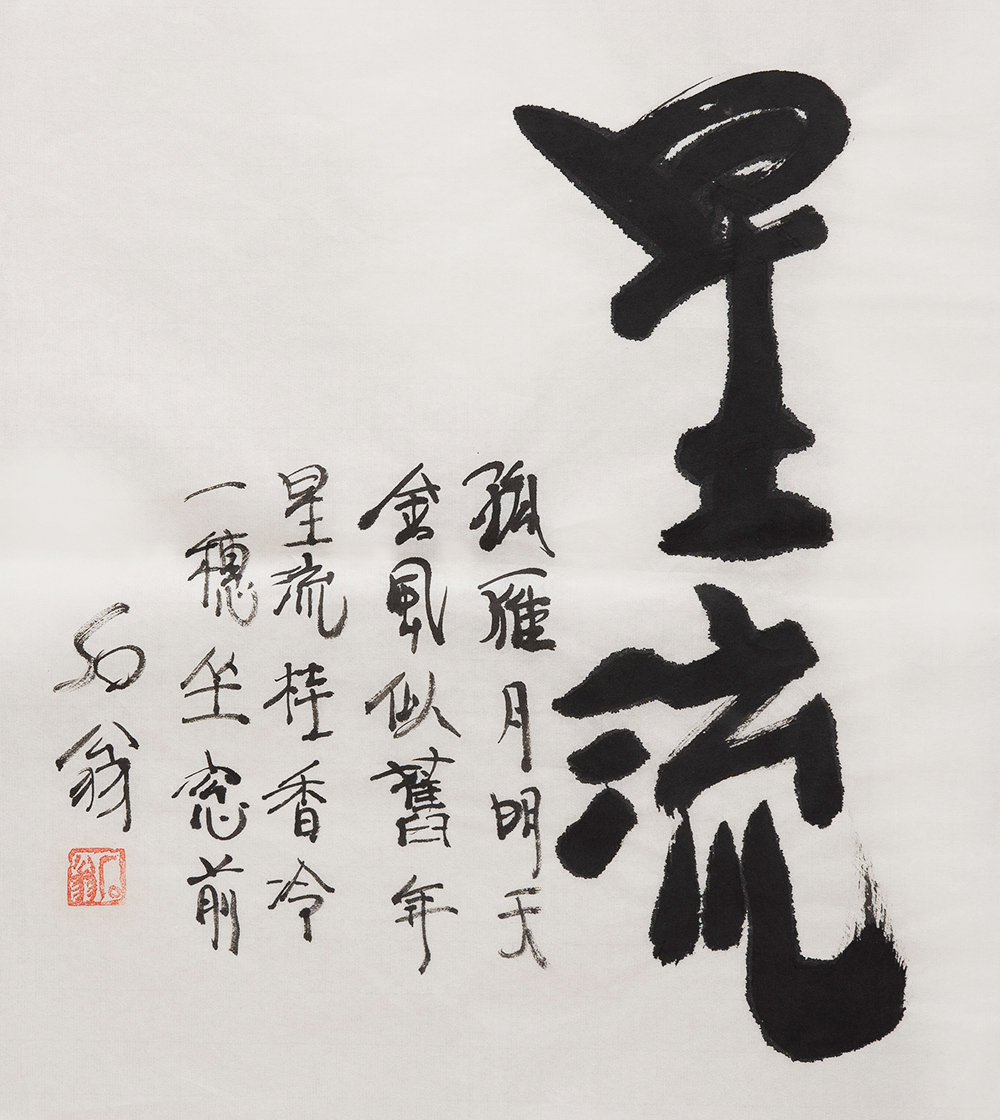 星流
孤雁月明天
金風似舊年
星流桂香冷
一穗坐窓前
石翁
石翁